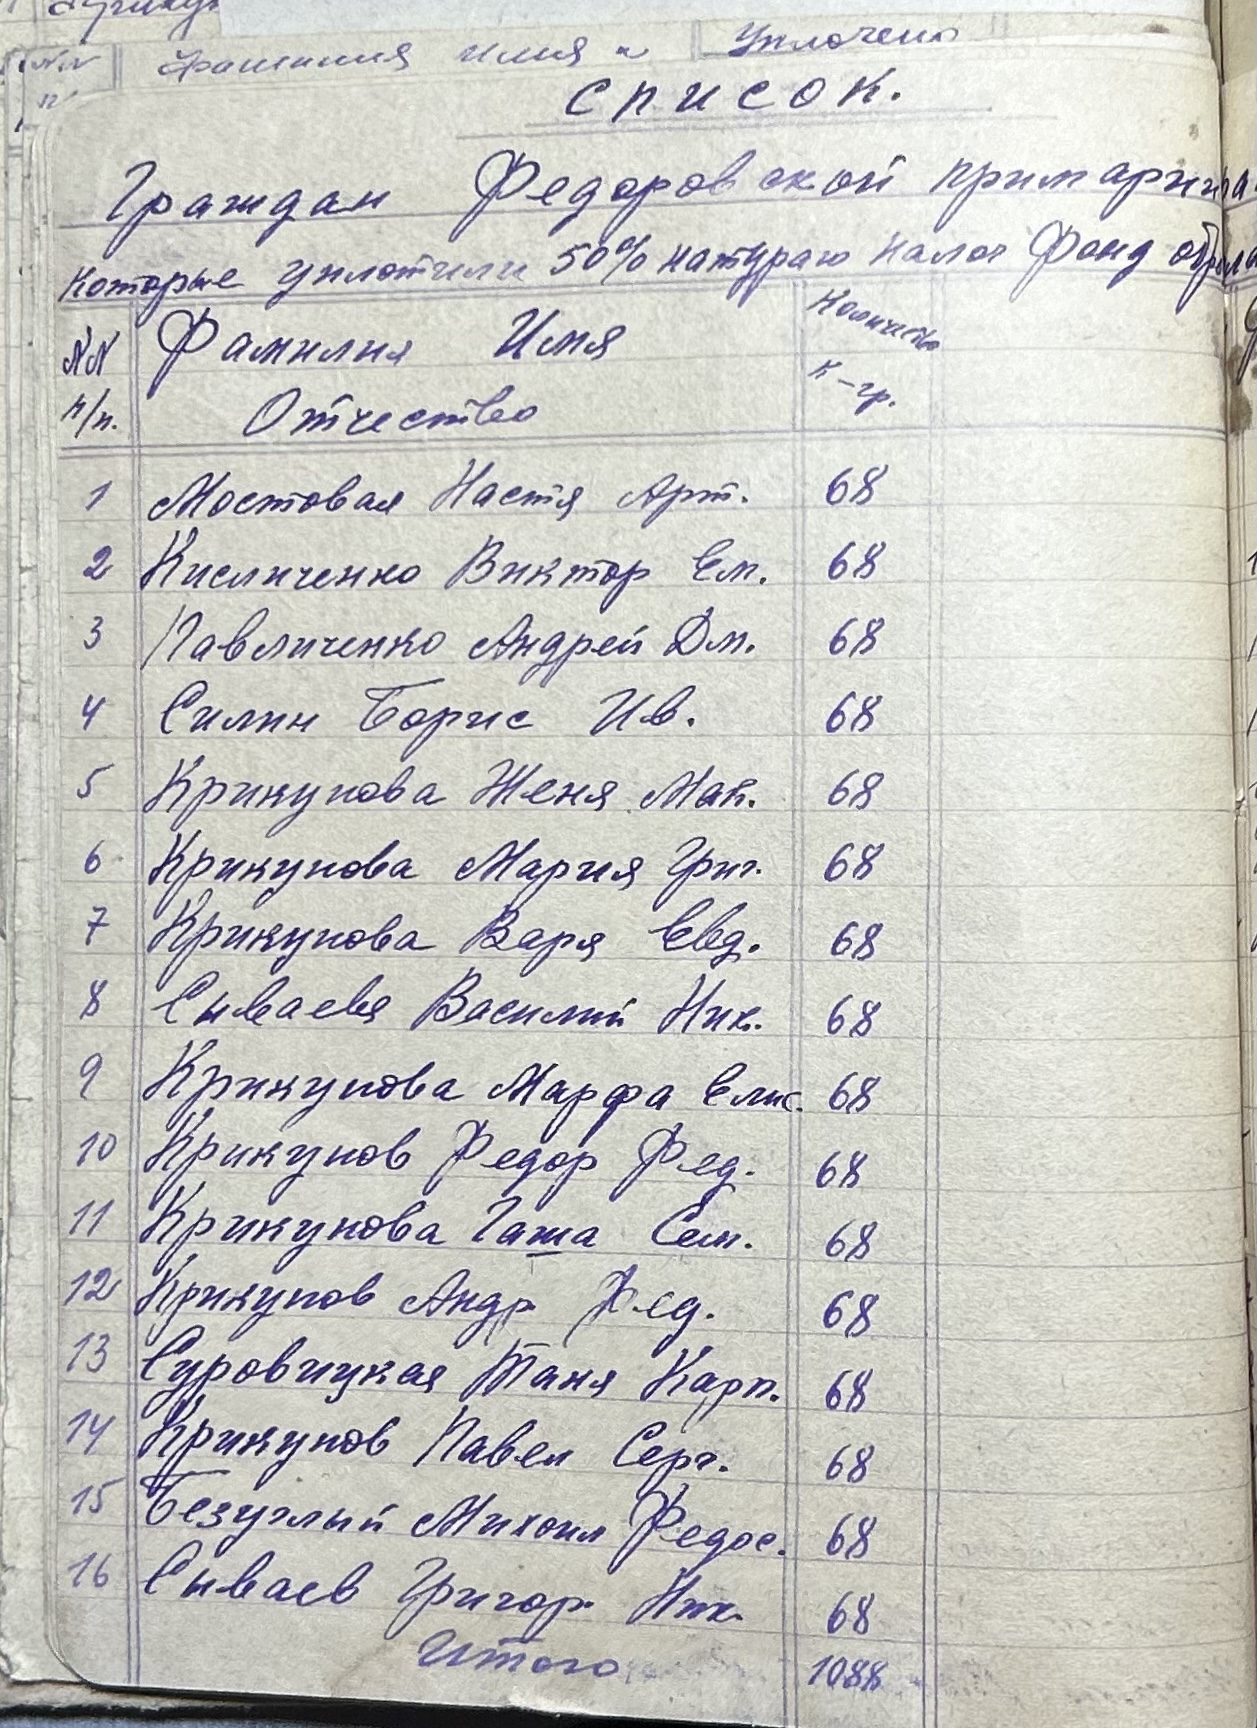 Фамилия Имя и Уплочено
СПИСОК.
Граждан Федоровской примарии
которые уплотили 50% натураю налог Фонд
NN Фамилия Имя Количество
п/п. Отчество к-гр.
1 Мостовая Настя Арт. 68
2 Кисличенко Виктор Ем. 68
3 Павличенко Андрей Дм. 68
4 Силин Борис Ив. 68
5 Крикунова Женя Мак. 68
6 Крикунова Мария Григ. 68
7 Крикунова Варя Евд. 68
8 Сываева Василий Ник. 68
9 Крикунова Марфа Елис. 68
10 Крикунов Федор Фед. 68
11 Крикунова Гаша Сем. 68
12 Крикунов Андр Фед. 68
13 Суровицкая Таня Карп. 68
14 Крикунов Павел Серг. 68
15 Безуглый Михоил Федос. 68
16 Сываев Григор Ник. 68
Итого 1088